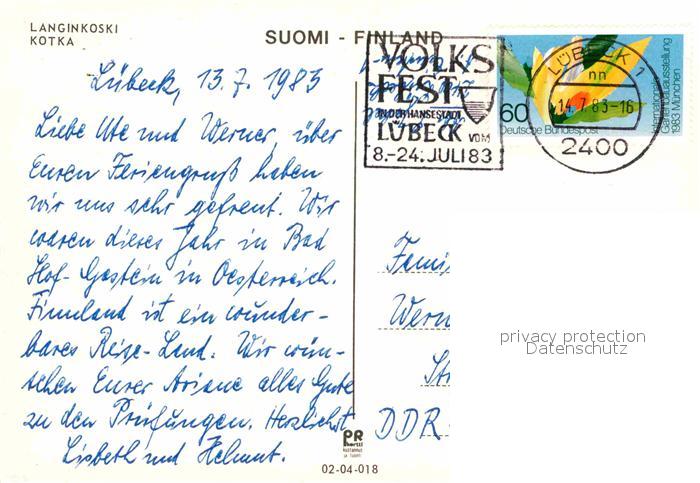 LANGINKOSKI
KOTKA
SUOMI - FINLAND
Lübeck, 13.7.1983
Liebe Ute und Werner, über
Euren Feriengruß haben
wir uns sehr gefreut. Wir
waren dieses Jahr in Bad
Hof-Gastein in Oesterreich.
Finnland ist ein wunder-
bares Reise-Land. Wir wün-
schen Eurer Ariane alles Gute
zu den Prüfungen. Herzlichst
Lisbeth und Helmut.
VOLKS
FEST
IN DER HANSESTADT
LÜBECK VOM
8.-24. JULI 83
60
Deutsche Bundespost
Internationale
Gartenbauausstellung
1983 München
LÜBECK 1
nn
14.7.83-16
2400
Fami
Wern
St
DDR-
privacy protection
Datenschutz
PR
02-04-018